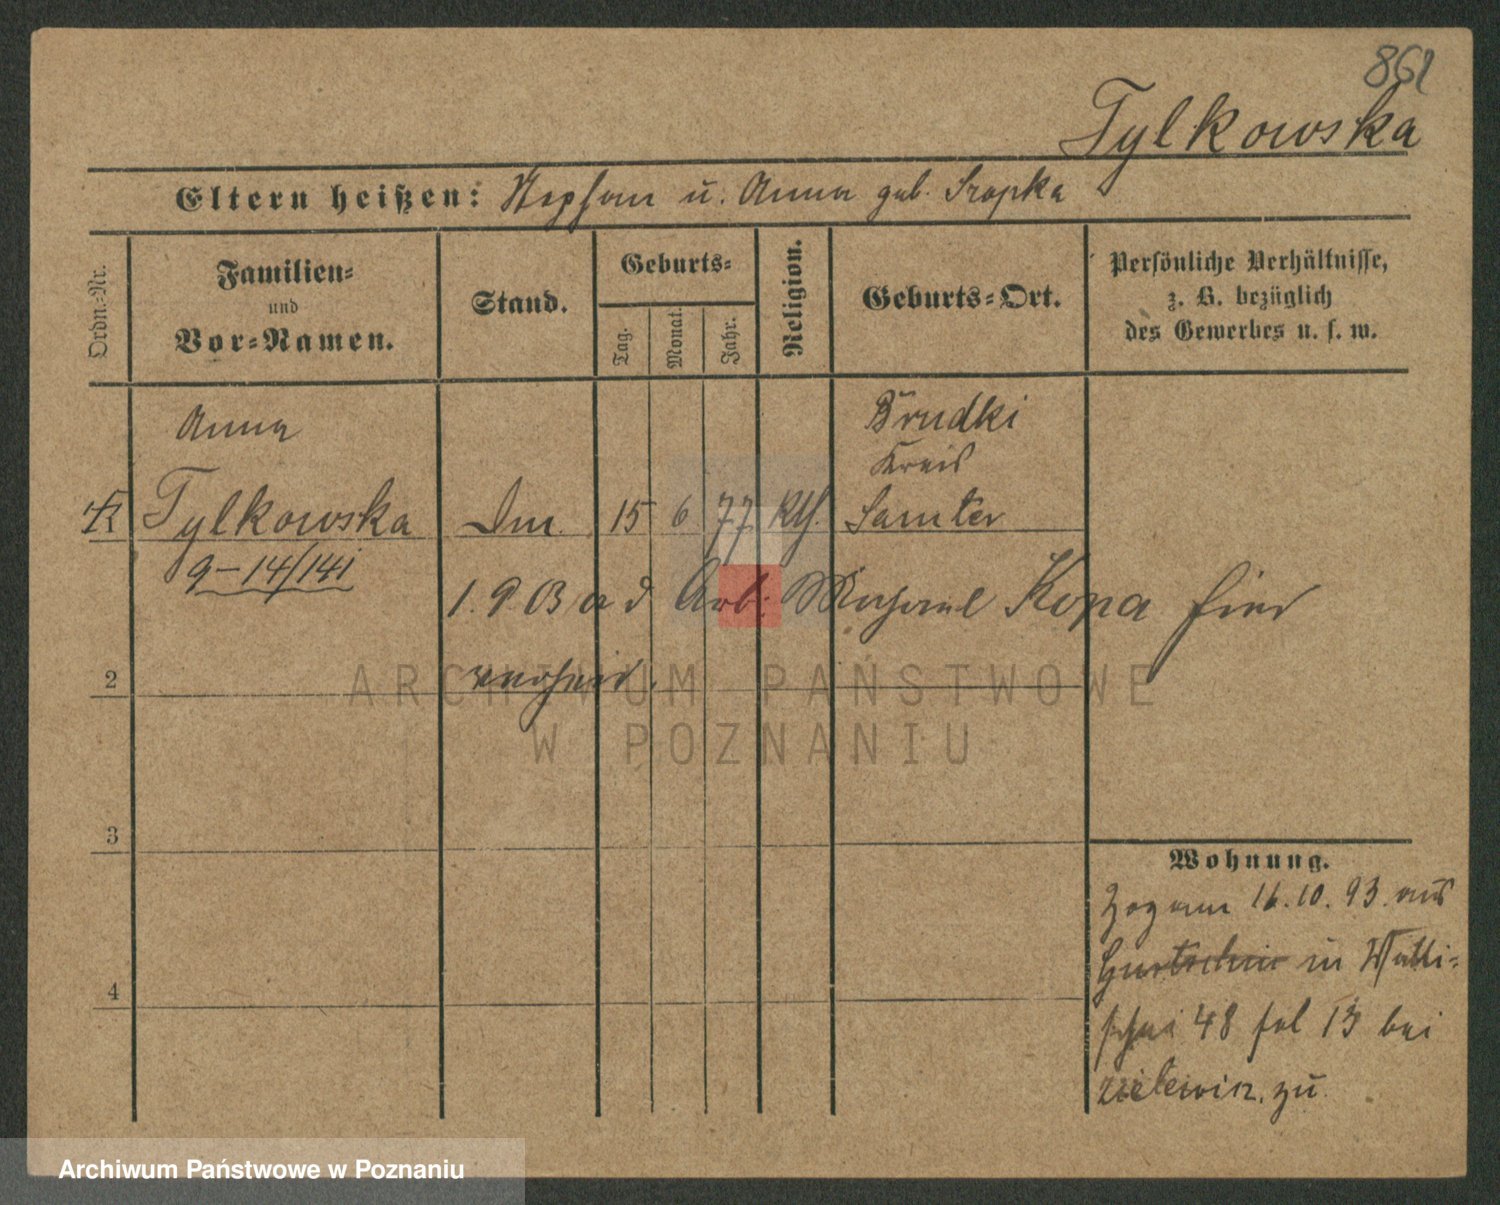 861
Tylkowska
Eltern heißen: Stephan u. Anna geb. Szopka
Ordn.-Nr.
Familien-
und
Vor-Namen.
Stand.
Geburts-
Tag.
Monat.
Jahr.
Religion.
Geburts-Ort.
Persönliche Verhältnisse,
z. B. bezüglich
des Gewerbes u. s. w.
Anna
Tylkowska
9-14/141
15 6 77 Kth.
Brudki
Kreis
Samter
1.9 03 a d Arb. Michael Kopa hier
verheir.
2
3
4
Wohnung.
Zog am 16.10.93. aus
Gurtschin in Walli-
schei 48 bei
zu
ARCHIWUM PAŃSTWOWE
W POZNANIU
Archiwum Państwowe w Poznaniu